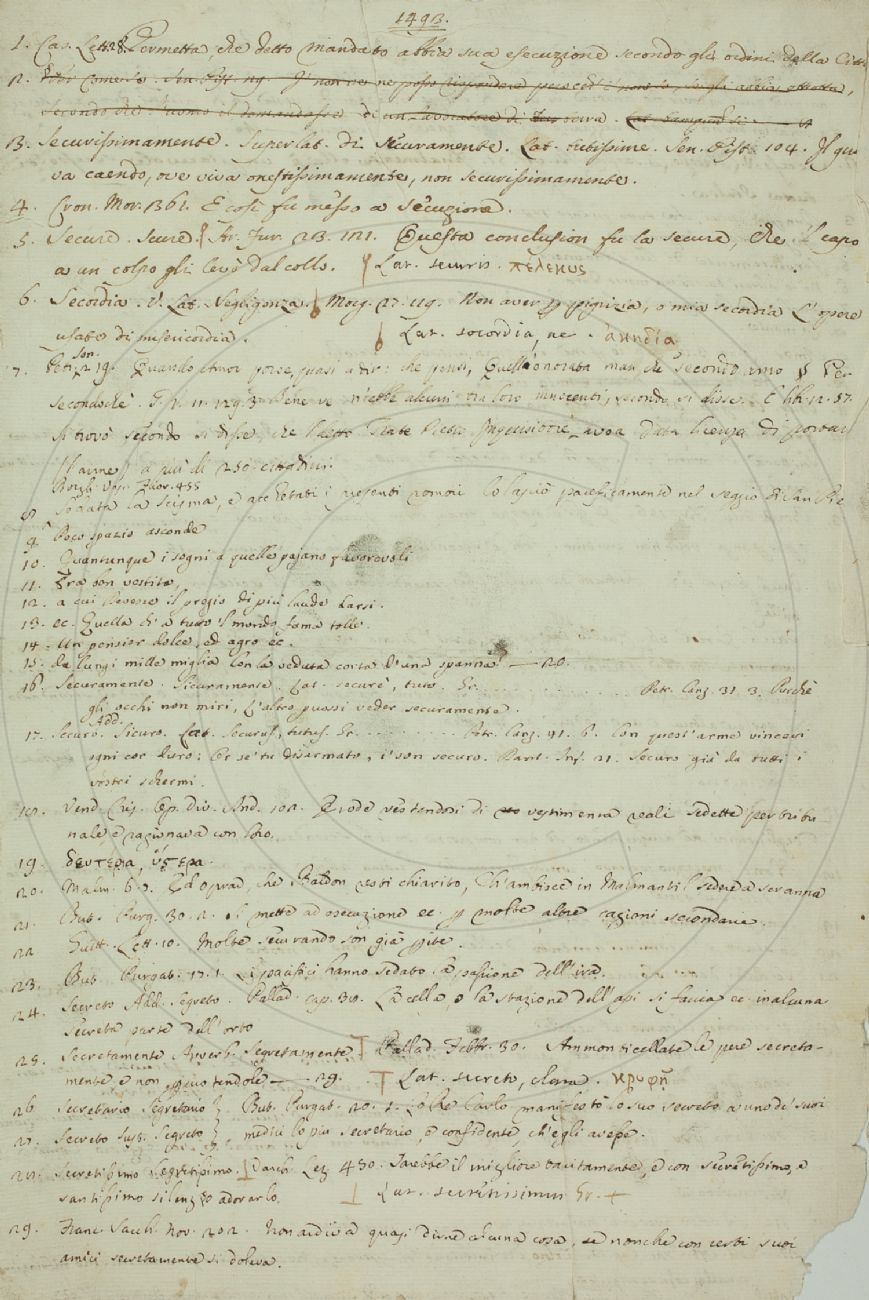 1493.
1. Cas. Lett. 28. Permetta che detto mandato abbia sua esecuzione secondo gli ordini della Città
2. Sen. Pist. 29. non ne posso rispondere
secondo che l'uomo il domandasse di un lavoratore di
3. Securissimamente. Superlat. di Securamente. Lat. tutissime. Sen. Pist. 104. Il qu
va caendo, ove viva onestissimamente, non securissimamente.
4. Cron. Mor. 361. E così fu messo a secuzione.
5. Secure. Scure. Ar. Fur. 23. 121. Questa conclusion fu la secure, che 'l capo
a un colpo gli levò dal collo. Lat. securis. πελεκυς
6. Secordia. V. Lat. Negligenza. Morg. 27. 119. Non aver p pigrizia, o mia secordia L'opere
usate di misericordia. Lat. socordia, ae. ἀκηδία
7. Petr. son. 219. Quando Amor porse, quasi a dir: che pensi, Quella onorata man che secondo amo
Secondochè. G. V. 11. 129. 3. Bene ve n'ebbe alcuni tra loro innocenti, secondo si disse. E lib. 12. 57.
Si trovò secondo si disse, che 'l detto Frate Piero Inquisitore avea data licenza di portar
l'arme a più di 250. cittadini.
Borgh. Vesc. Fior. 455
8 Sedatta la scisma, e acc i presenti romori lo lasciò pacificamente nel seggio di San Pie
9 Poco spazio asconde
10. Quantunque i sogni a quelle pajano favorevoli
11. Era ben vestito,
12. a cui devesse il pregio di più laude darsi.
13. ec. Quella ch'a tutto 'l mondo fama tolle.
14. Un pensier dolce, ed agro ec.
15. da lungi mille miglia Con la veduta corta d'una spanna. — 20.
16. Securamente. Sicuramente. Lat. securè, tuto. Gr. . . . . . . . . . . . . . Petr. Canz. 31. 3. Purchè
gli occhi non miri, L'altro puossi veder securamente.
Add.
17. Securo. Sicuro. Lat. Securus, tutus. Gr. . . . . . . . . . Petr. Canz. 41. 6. Con quest'arme vincevi
ogni cor duro: Or se' tu disarmato, i' son securo. Dant. Inf. 21. Securo già da tutti i
vostri schermi.
18. Vend. Crist. Op. Div. And. 102. Erode vestendosi di vestimenta reali sedette per tribu
nale e ragionava con loro.
19. δευτερα, ὑστερα.
20. Malm. 6. Ed oprar, che Baldon resti chiarito, Ch'ambisce in Malmantil sedere a scranna
21. But. Purg. 30. 2. Si mette ad esecuzione ec. p molte altre ragioni secondarie.
22 Guitt. Lett. 10. Molte securando son già pite.
23. But. Purgat. 17. 1. Li pacifici hanno sedato la passione dell'ira.
24. Secreto Add. Segreto. Pallad. cap. 39. La cella, o la stazione dell'api si faccia ec. in alcuna
secreta parte dell'orto
25. Secretamente Avverb. Segretamente Pallad. Febbr. 30. Ammonticellate le pere secreta-
mente e non — 29. Lat. secreto, clam. κρυφῆ
26. Secretario Segretario. But. Purgat. 20. 1. Lo Re Carlo manifestò lo suo secreto a uno de' suoi
27. Secreto Sust. Segreto medici lo più secretario, e confidente ch'egli avesse.
28. Secretissimo Segretissimo. Varch. Lez. 430. Sarebbe il migliore tacitamente, e con secretissimo, e
santissimo silenzio adorarlo. Lat. secretissimus Gr. +
29. Franc. Sacch. Nov. 202. Non ardiva quasi dirne alcuna cosa, se nonchè con certi suoi
amici secretamente si doleva.